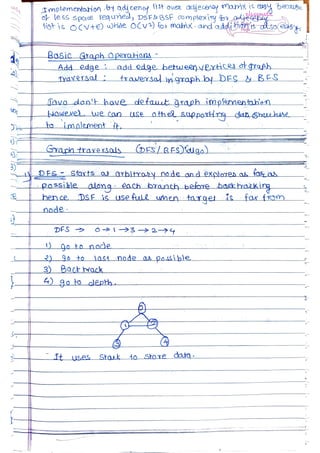 Implementation by adjceny list over adjecency matrix is easy because
of less space required, DSF&BSF complexity for adjeceny
list is O(V+E) while O(V²) for matrix and addition is also easy.
Basic Graph Operations -
Add edge : add edge between vertices of graph
traversal : traversal in graph by DFS & BFS
Java don't have default graph implementation
However we can use other supporting data structure
to implement it.
Graph traversals (DFS / BFS)(algo)
1) DFS - starts at arbitraty node and explores as far as
possible along each branch before backtracking
hence DSF is usefull when target is far from
node.
DFS → 0→1→3→2→4
1) go to node
2) go to last node as possible
3) Back track
4) go to depth.
0
1 2
3 4
It uses stack to store data.